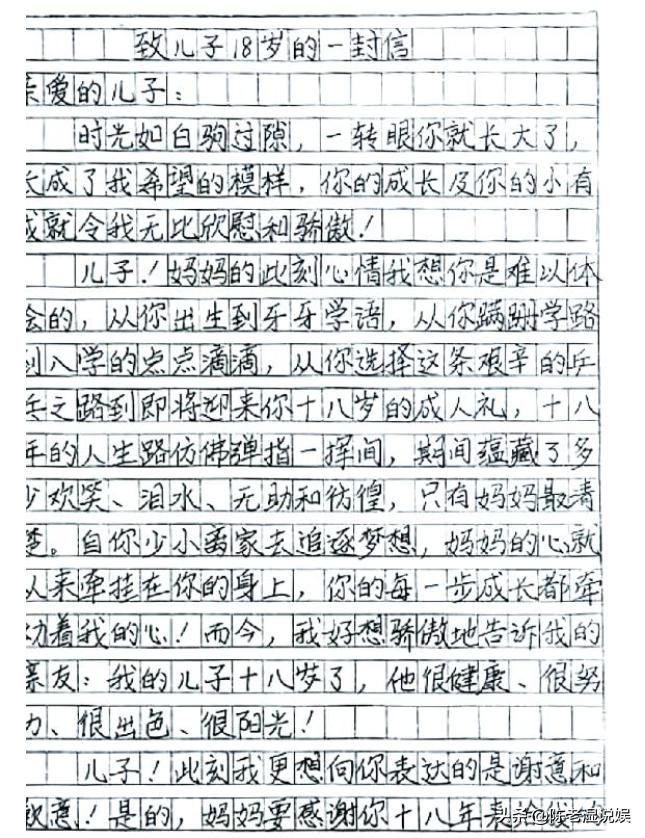 致儿子18岁的一封信
亲爱的儿子：
时光如白驹过隙，一转眼你就长大了，
长成了我希望的模样，你的成长及你的小有
成就令我无比欣慰和骄傲！
儿子！妈妈的此刻心情我想你是难以体
会的，从你出生到牙牙学语，从你蹒跚学路
到入学的点点滴滴，从你选择这条艰辛的乒
乓之路到即将迎来你十八岁的成人礼，十八
年的人生路仿佛弹指一挥间，期间蕴藏了多
少欢笑、泪水、无助和彷徨，只有妈妈最清
楚。自你少小离家去追逐梦想，妈妈的心就
从来牵挂在你的身上，你的每一步成长都牵
动着我的心！而今，我好想骄傲地告诉我的
亲友：我的儿子十八岁了，他很健康、很努
力、很出色、很阳光！
儿子！此刻我更想向你表达的是谢意和
歉意！是的，妈妈要感谢你十八年来
头条@陈老湿说娱